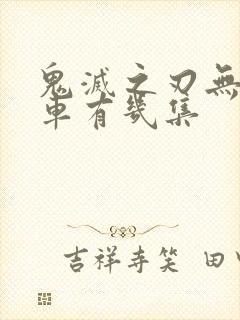 鬼滅之刃無
車有幾集
吉祥寺笑 田